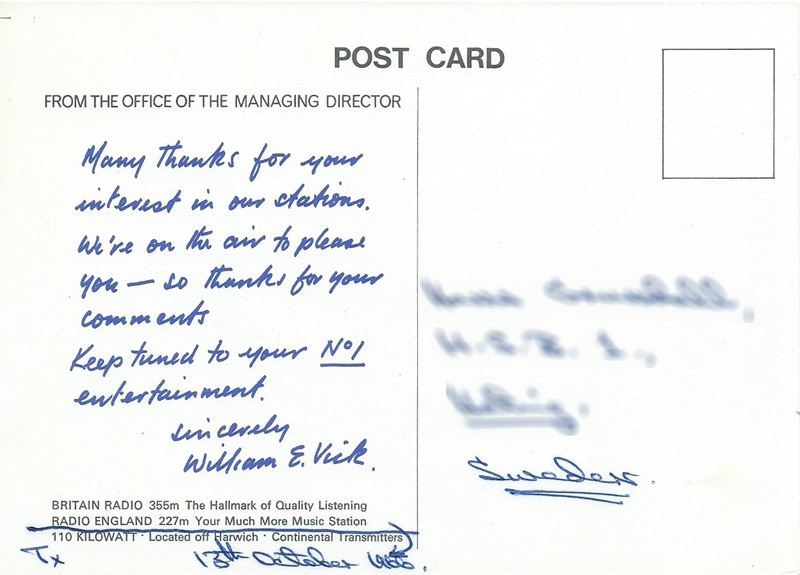 POST CARD
FROM THE OFFICE OF THE MANAGING DIRECTOR
Many thanks for your
interest in our stations.
We're on the air to please
you — so thanks for your
comments
Keep tuned to your Nº1
entertainment.
sincerely
William E. Vick.
BRITAIN RADIO 355m The Hallmark of Quality Listening
RADIO ENGLAND 227m Your Much More Music Station
110 KILOWATT · Located off Harwich · Continental Transmitters
Tx 13th October 1966.
Sweden.